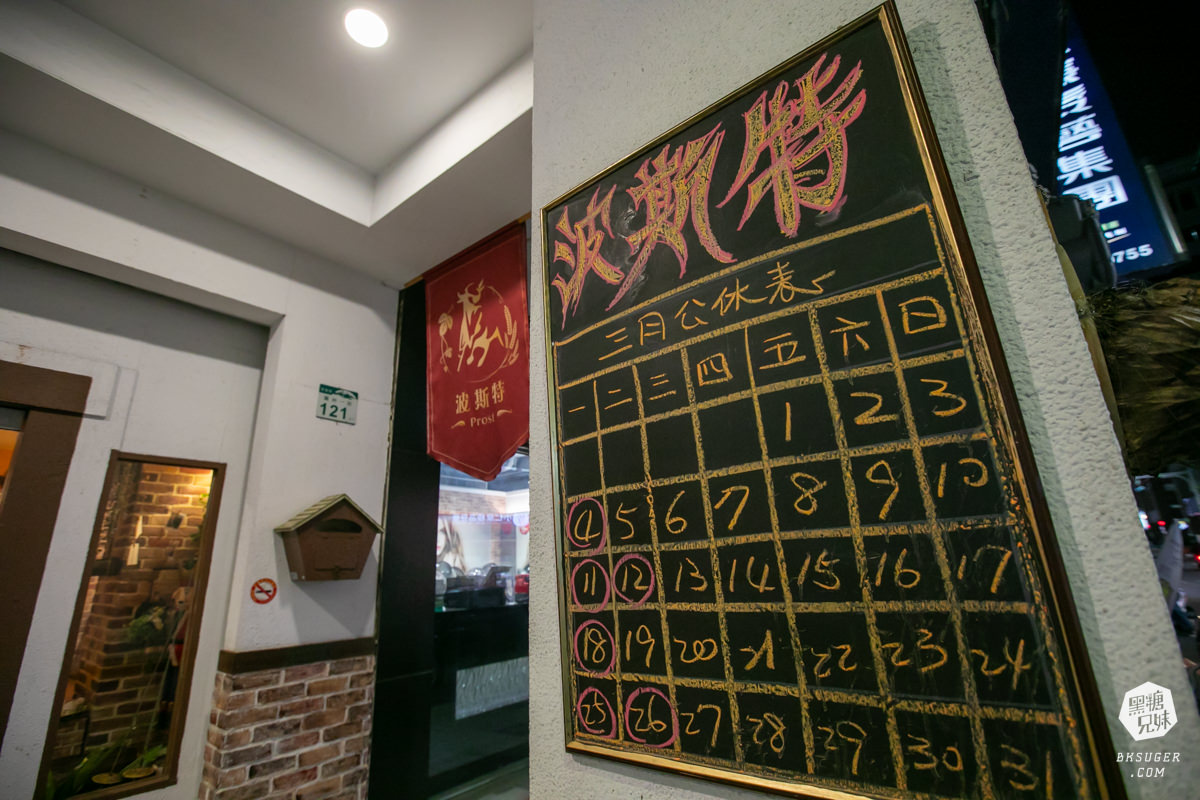 波斯特
三月公休表
一 二 三 四 五 六 日
1 2 3
4 5 6 7 8 9 10
11 12 13 14 15 16 17
18 19 20 21 22 23 24
25 26 27 28 29 30 31
波斯特
Prost
121
集團
0755
黑糖
兄妹
BKSUGER
.COM